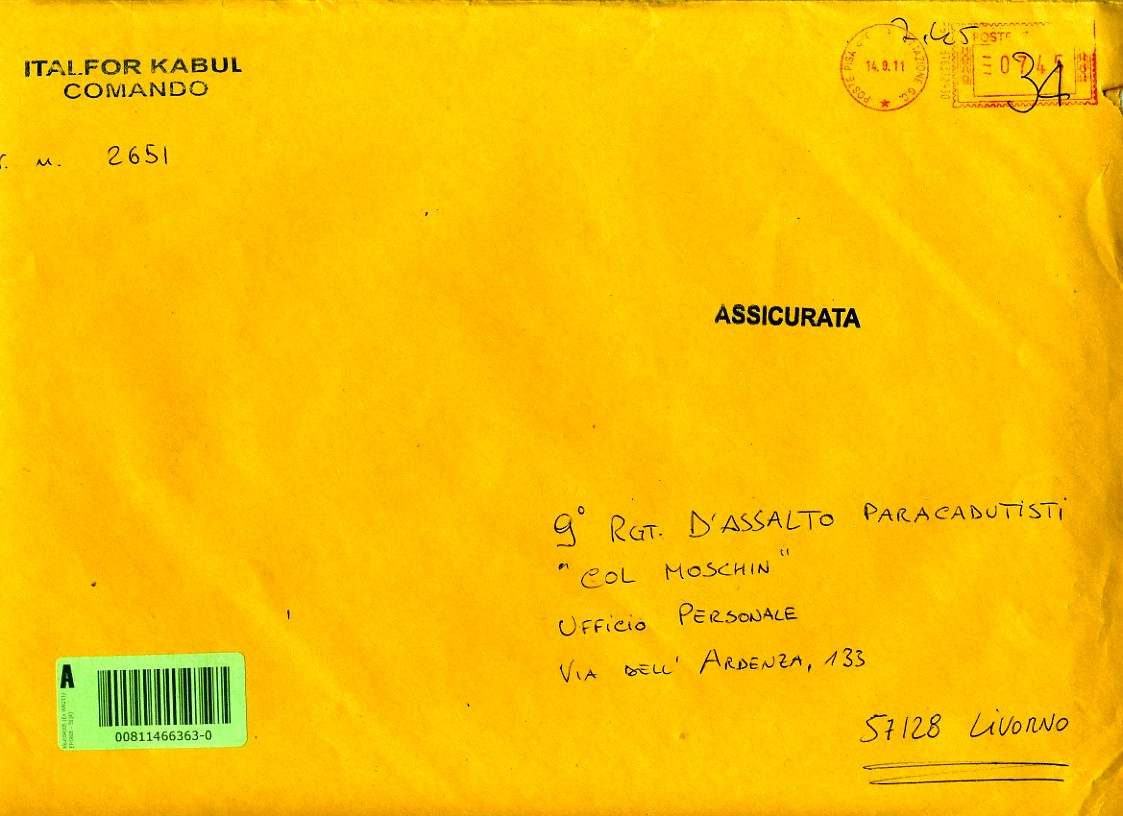 ITALFOR KABUL
COMANDO
n. 2651
POSTE PISA
14.9.11
2,45
POSTE
34
ASSICURATA
9° RGT. D'ASSALTO PARACADUTISTI
"COL MOSCHIN"
UFFICIO PERSONALE
VIA DELL' ARDENZA, 133
57128 LIVORNO
A
00811466363-0